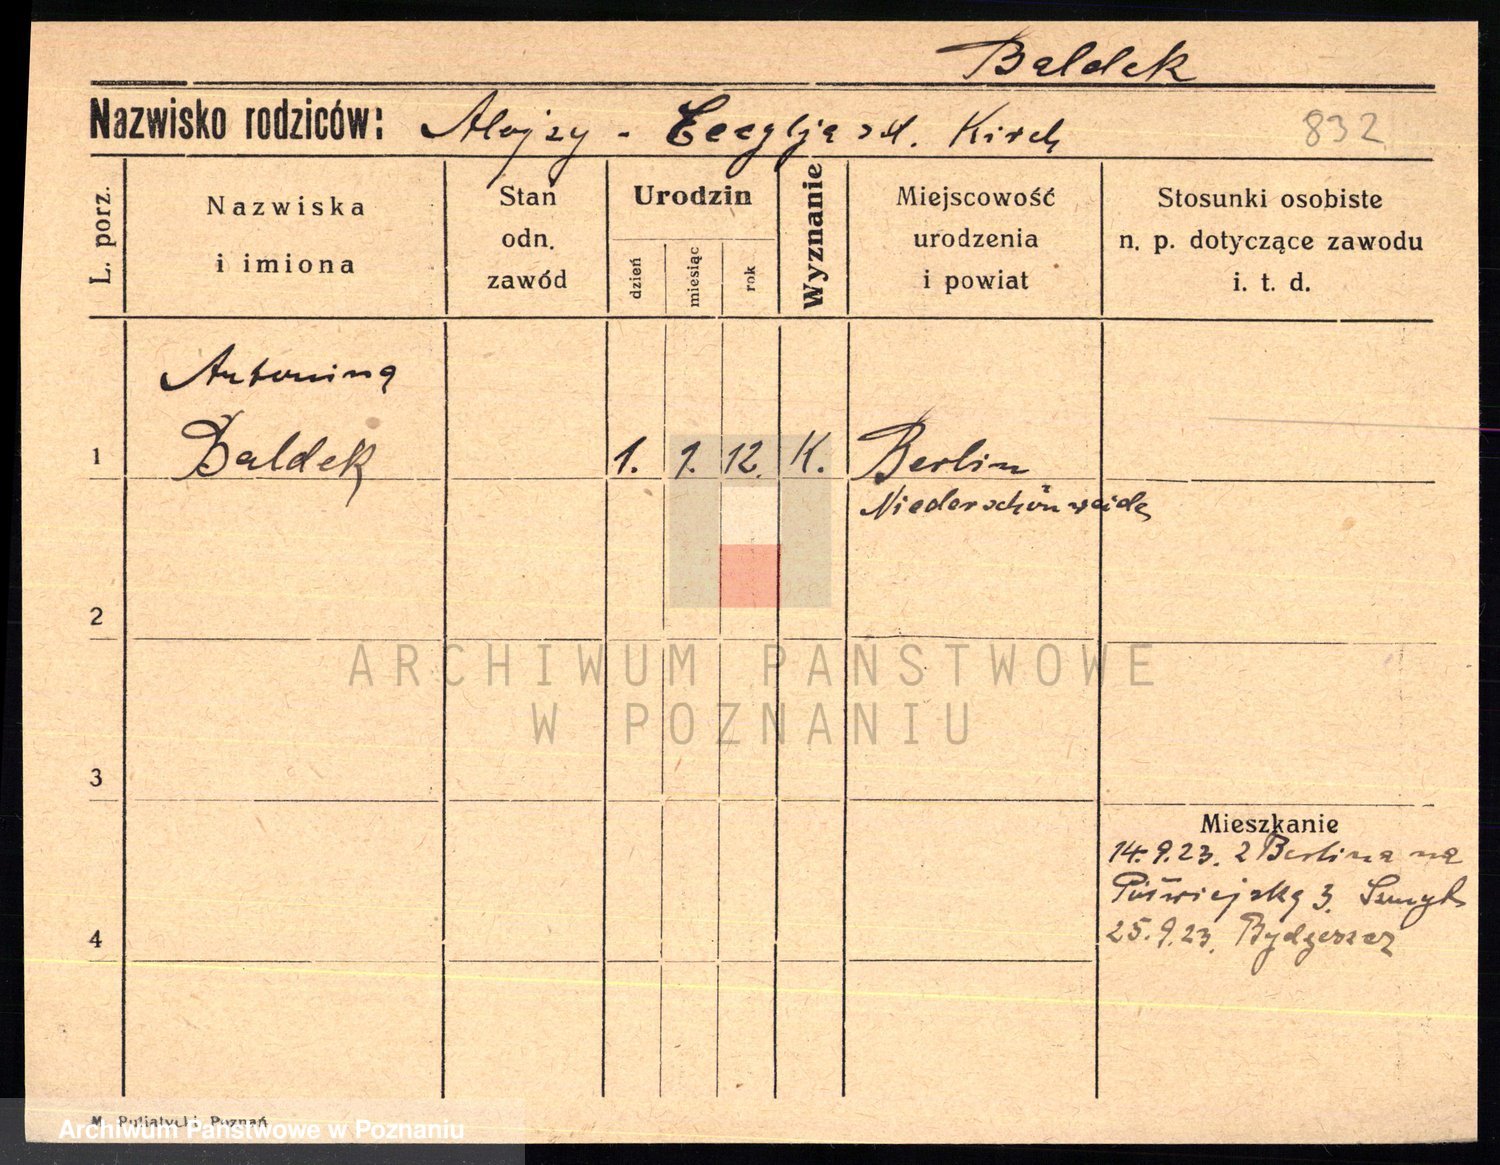 Baldek
Nazwisko rodziców: Alojzy - Cecylja zd. Kirch 832
L. porz.
Nazwiska
i imiona
Stan
odn.
zawód
Urodzin
dzień
miesiąc
rok
Wyznanie
Miejscowość
urodzenia
i powiat
Stosunki osobiste
n. p. dotyczące zawodu
i. t. d.
Antonina
1 Baldek 1. 9. 12. K. Berlin
Niederschönweide
2
ARCHIWUM PAŃSTWOWE
W POZNANIU
3
Mieszkanie
14.9.23. z Berlina na
Półwiejską 3.
4 25.9.23. Bydgoszcz
Poznań
Archiwum Państwowe w Poznaniu